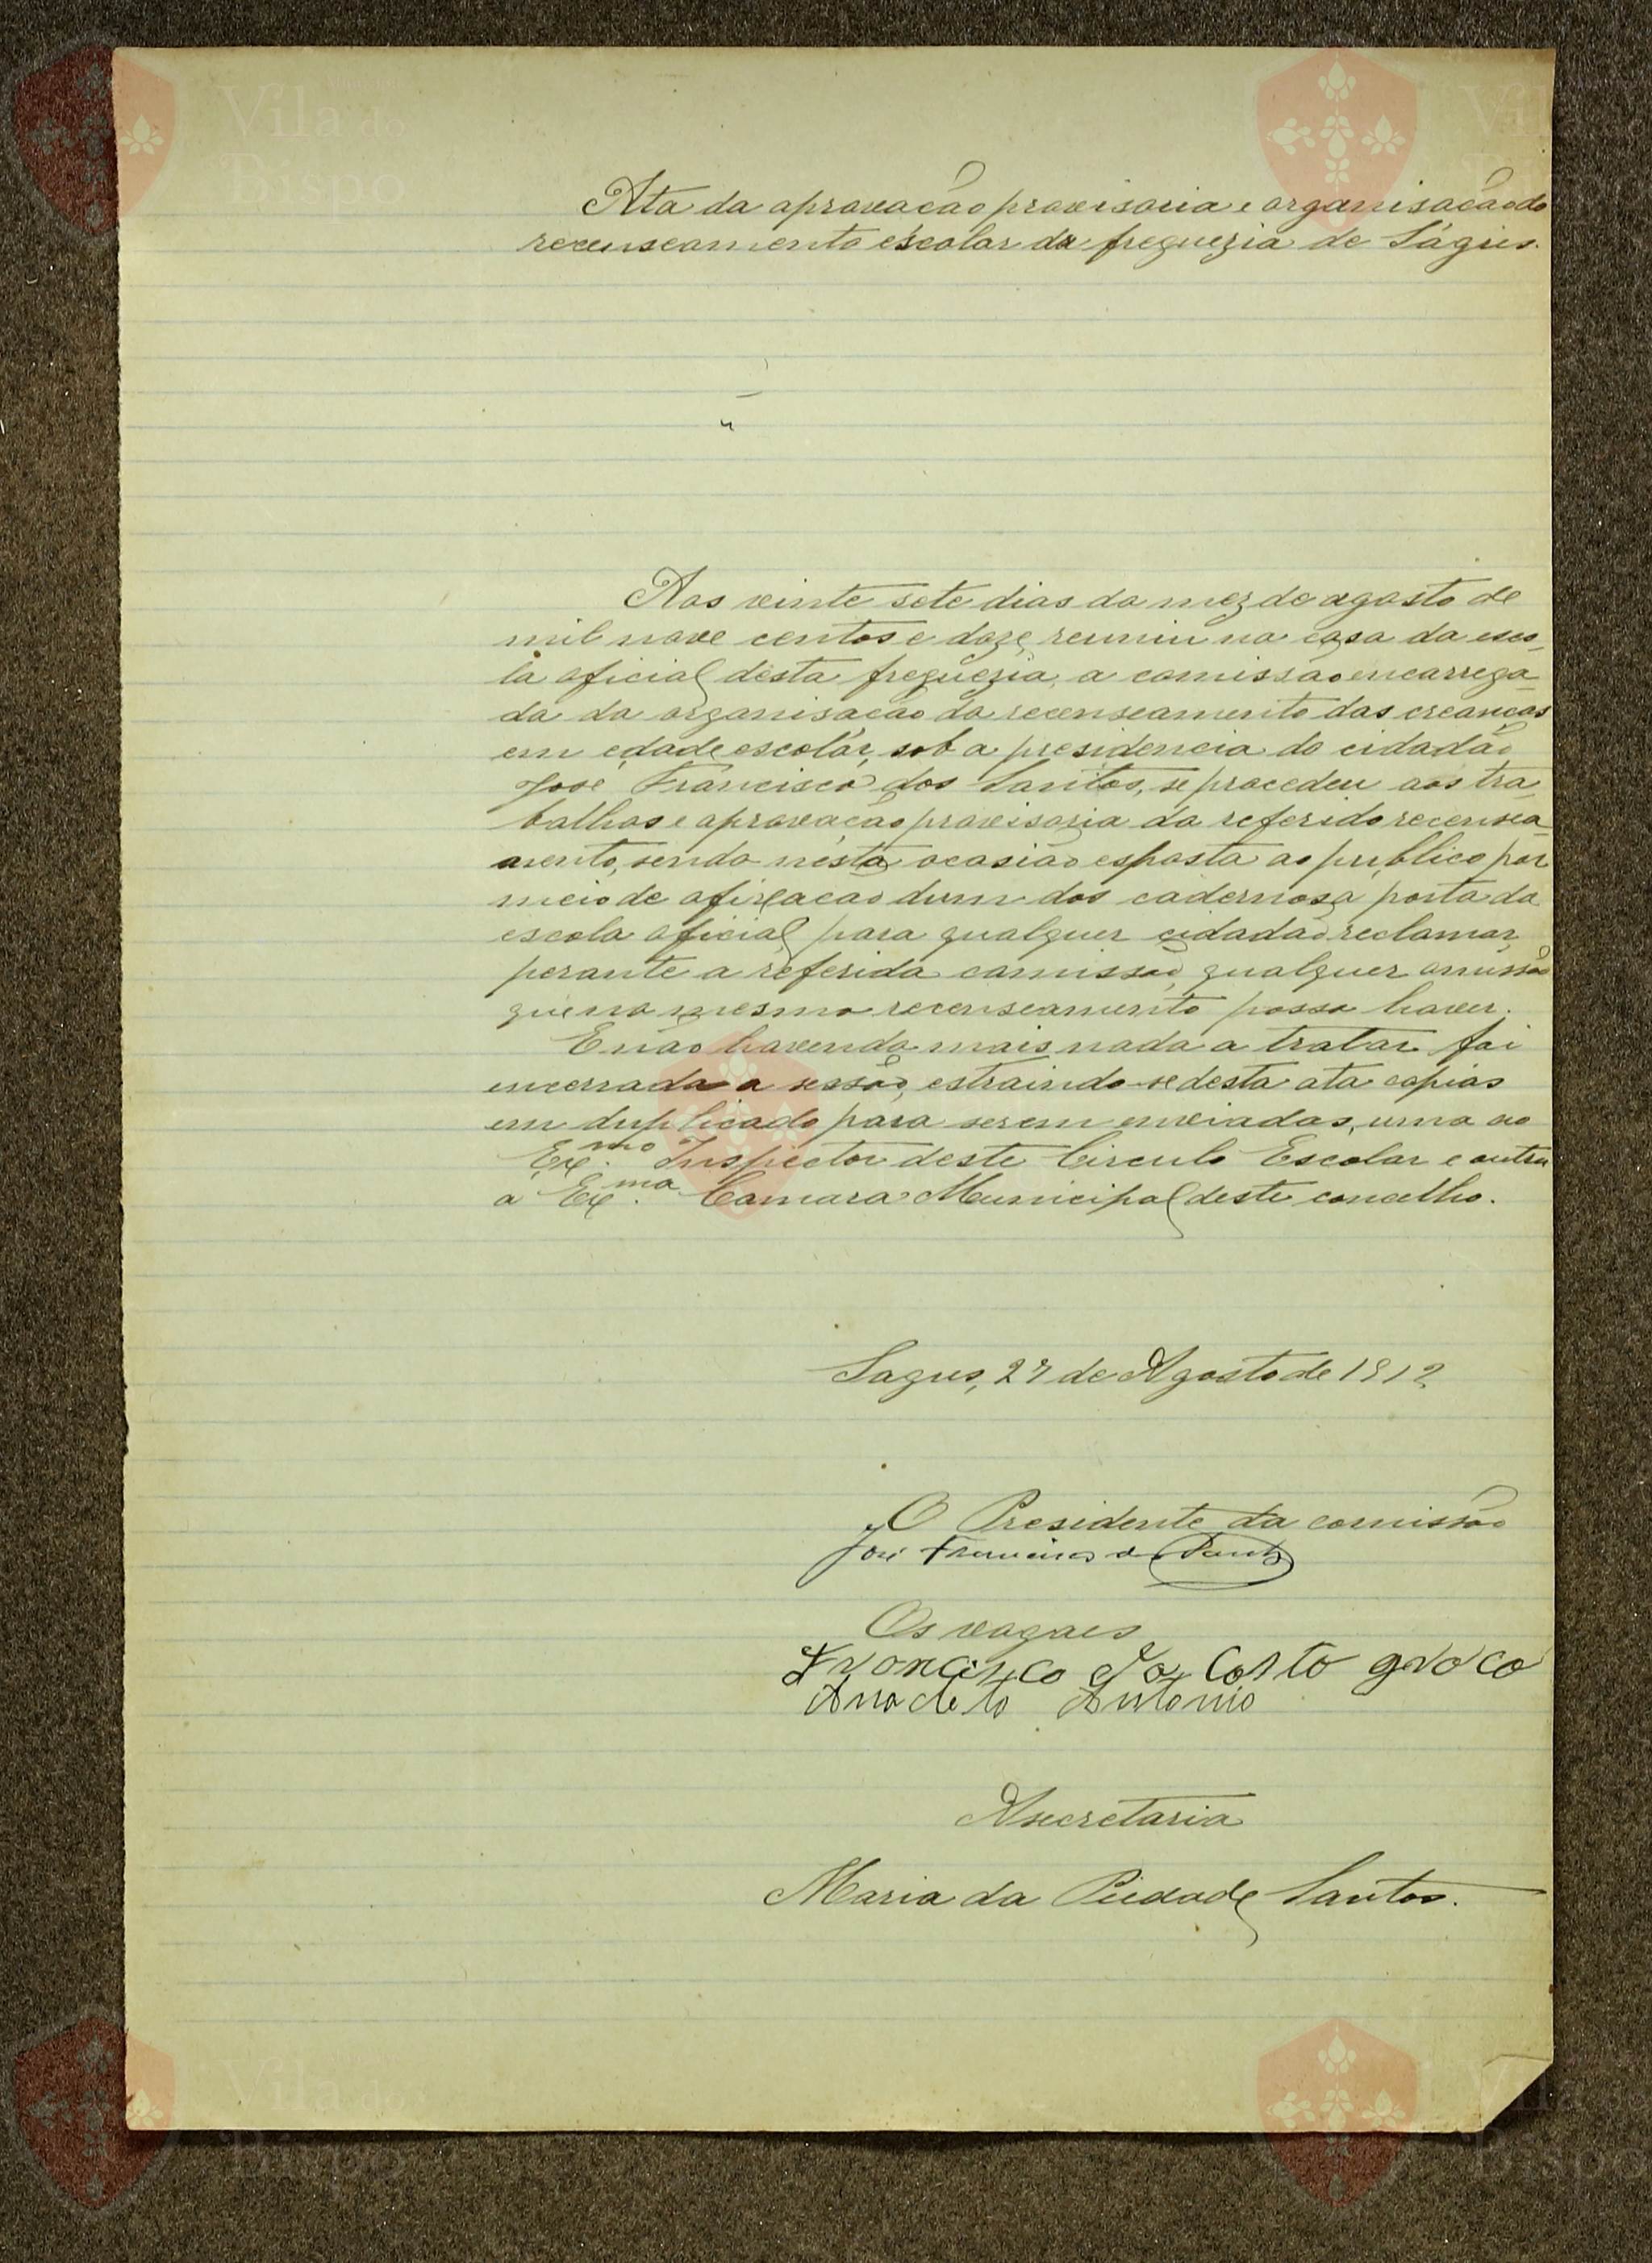 Vila do
Bispo
Ata da aprovação provisoria e organisação do
recenseamento escolar da freguezia de Ságres.
Aos vinte sete dias do mez de agosto de
mil nove centos e doze, reuniu na casa da esco-
la oficial desta freguezia, a comissão encarrega-
da da organisação do recenseamento das creanças
em edade escolár, sob a presidencia do cidadão
José Francisco dos Santos, se procedeu aos tra-
balhos e aprovação provisoria do referido recensea-
mento, sendo nesta ocasião esposta ao publico por
meio de afixação dum dos cadernos a porta da
escola oficial para qualquer cidadão reclamar,
perante a referida comissão, qualquer omissão
que no mesmo recenseamento possa haver.
E não havendo mais nada a tratar foi
encerrada a sessão, estraindo-se desta ata copias
em duplicado para serem enviadas, uma ao
Ex.mo Inspector deste Circulo Escolar e outra
a Ex.ma Camara Municipal deste concelho.
Sagres, 27 de Agosto de 1912
O Presidente da comissão
José Francisco dos Santos
Os vogaes
Francisco da Costo
Anacleto Antonio
A secretaria
Maria da Piedade Santos.
Vila do
Bispo